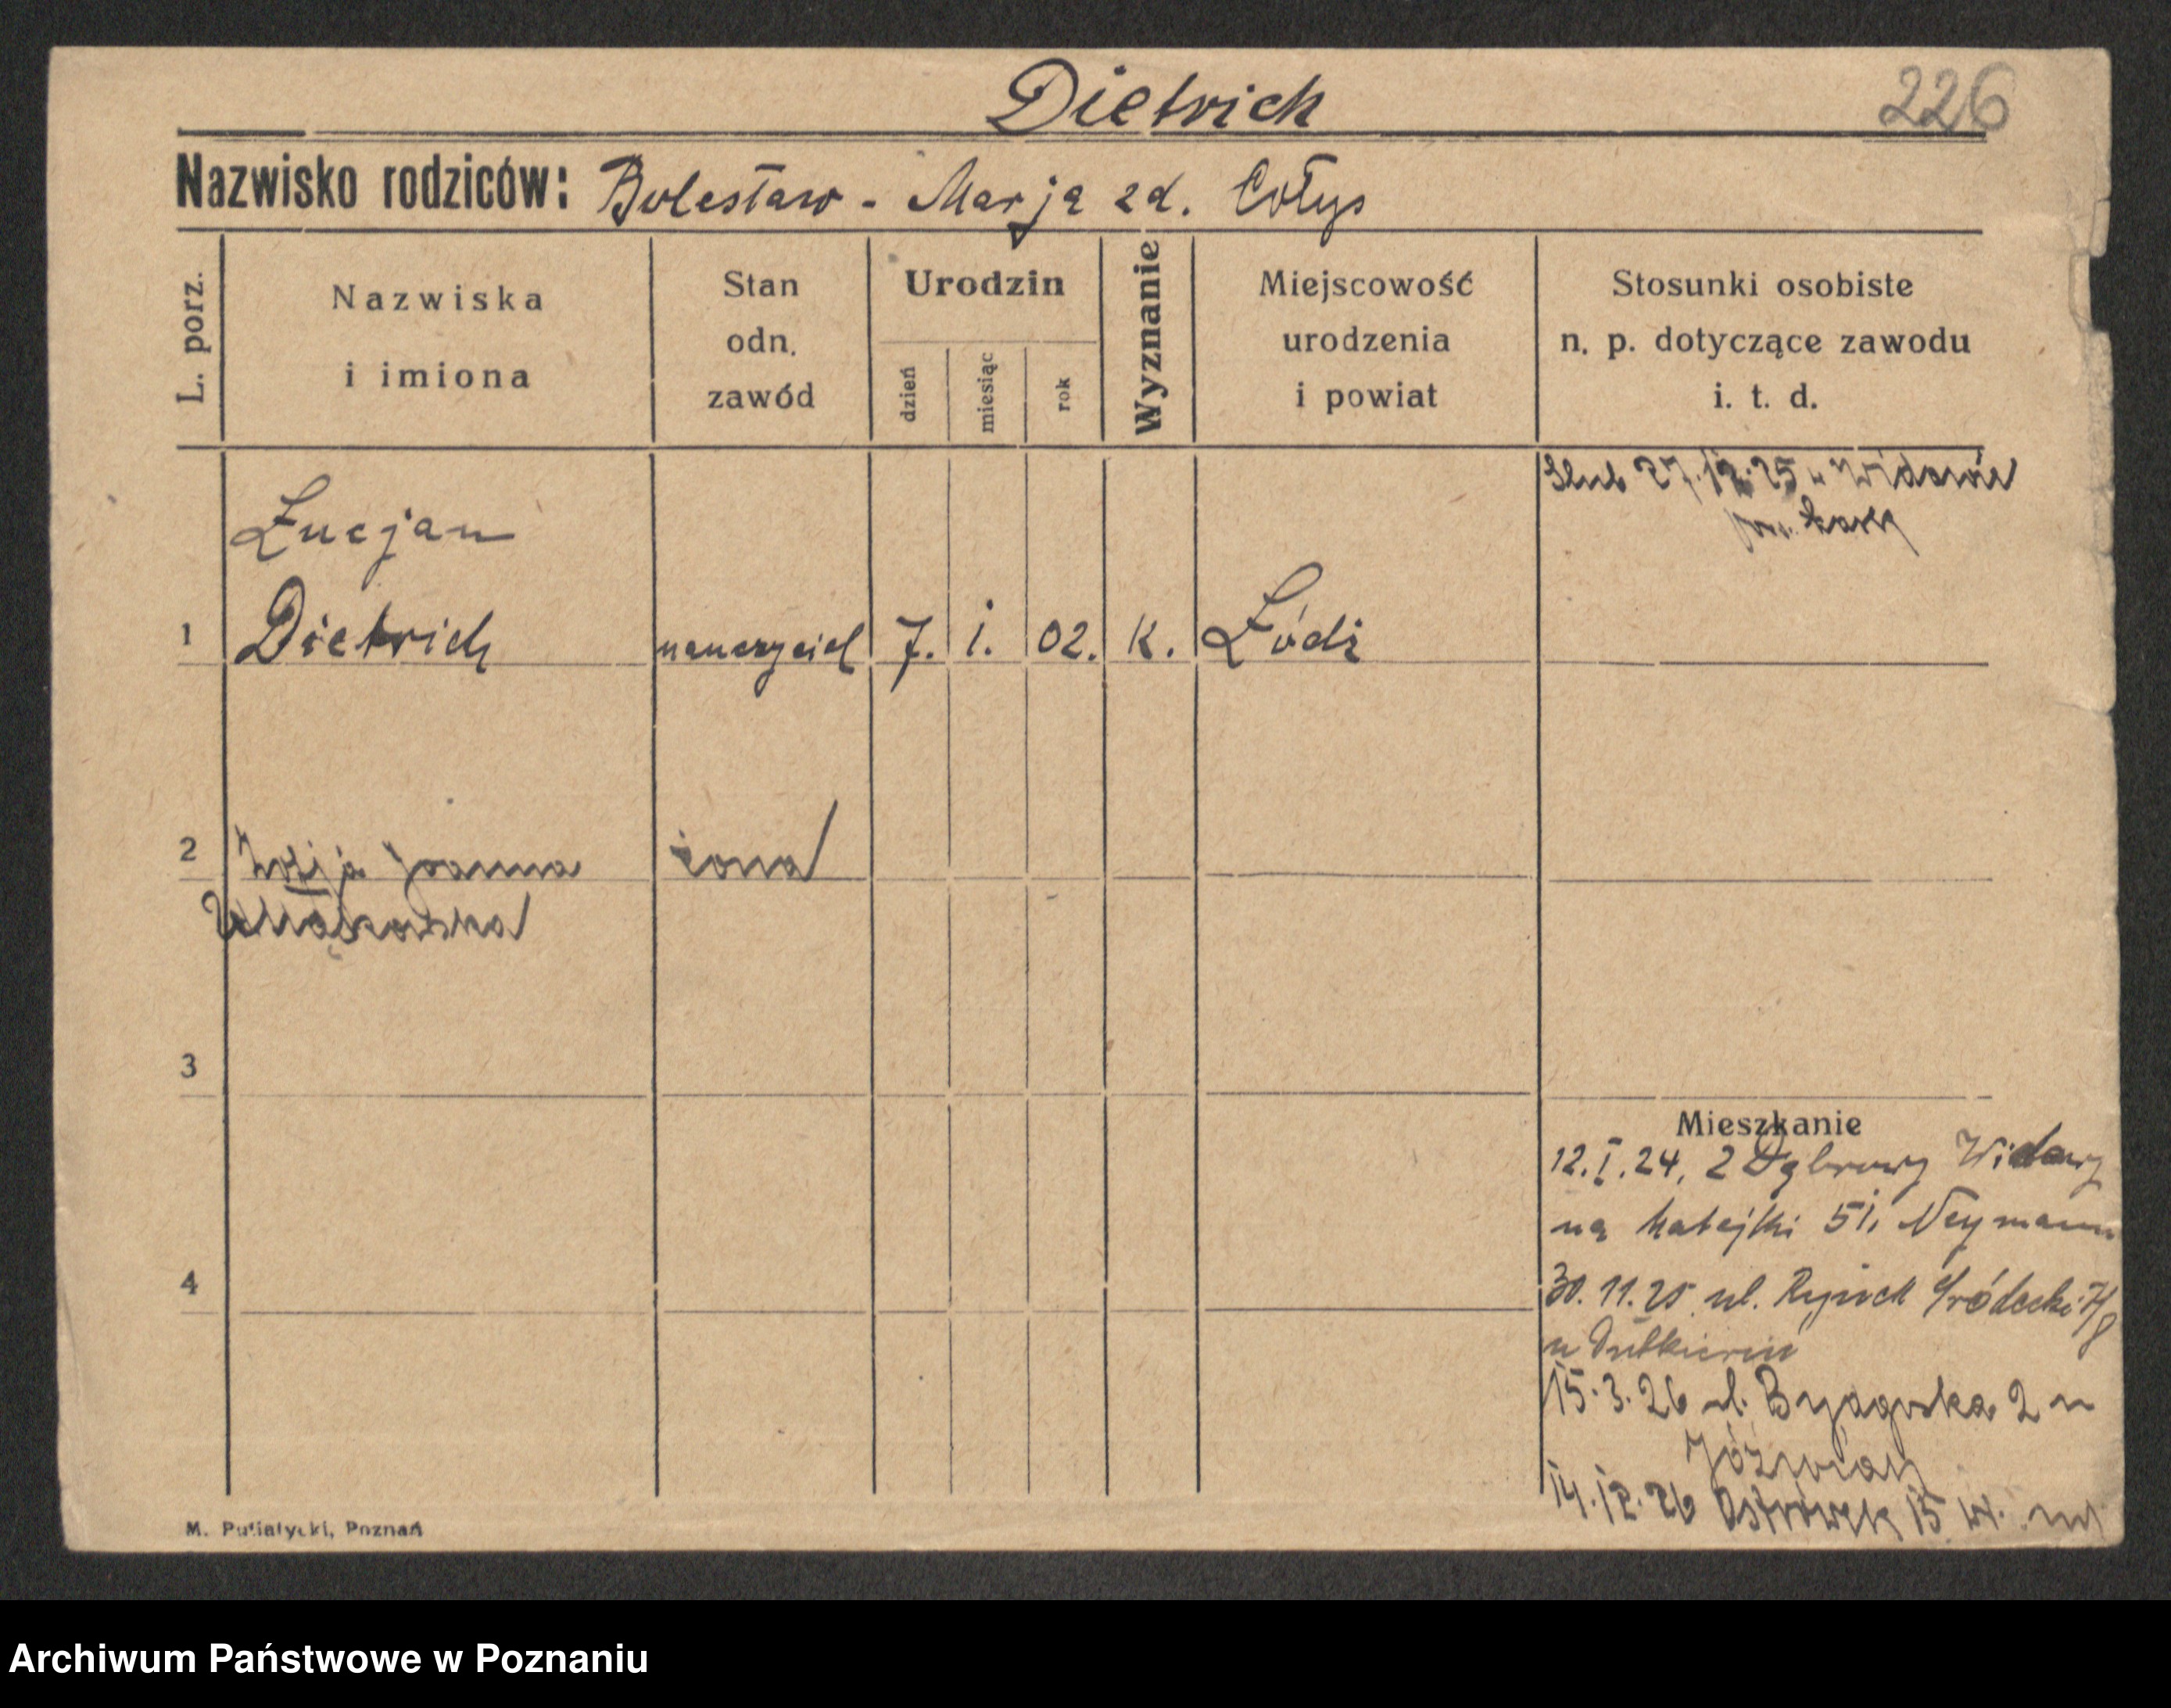 Dietrich
226
Nazwisko rodziców: Bolesław - Marja zd. Cołys
L. porz.
Nazwiska
i imiona
Stan
odn.
zawód
Urodzin
dzień
miesiąc
rok
Wyznanie
Miejscowość
urodzenia
i powiat
Stosunki osobiste
n. p. dotyczące zawodu
i. t. d.
Ślub 27.12.25 w Widawie
pow. Łask
Łucjan
1 Dietrich nauczyciel 7. i. 02. K. Łódź
2 Zofja Joanna żona
3
4
Mieszkanie
12.I.24, z Dąbrowy Widawy
na Matejki 51, Neymann
30.11.25 ul. Rynek Śródecki 7/8
u Dutkiewicz
15.3.26 ul. Bydgoska 2 u
Jóźwiak
14.12.26 Ostrówek 15 w.
M. Putiatycki, Poznań
Archiwum Państwowe w Poznaniu